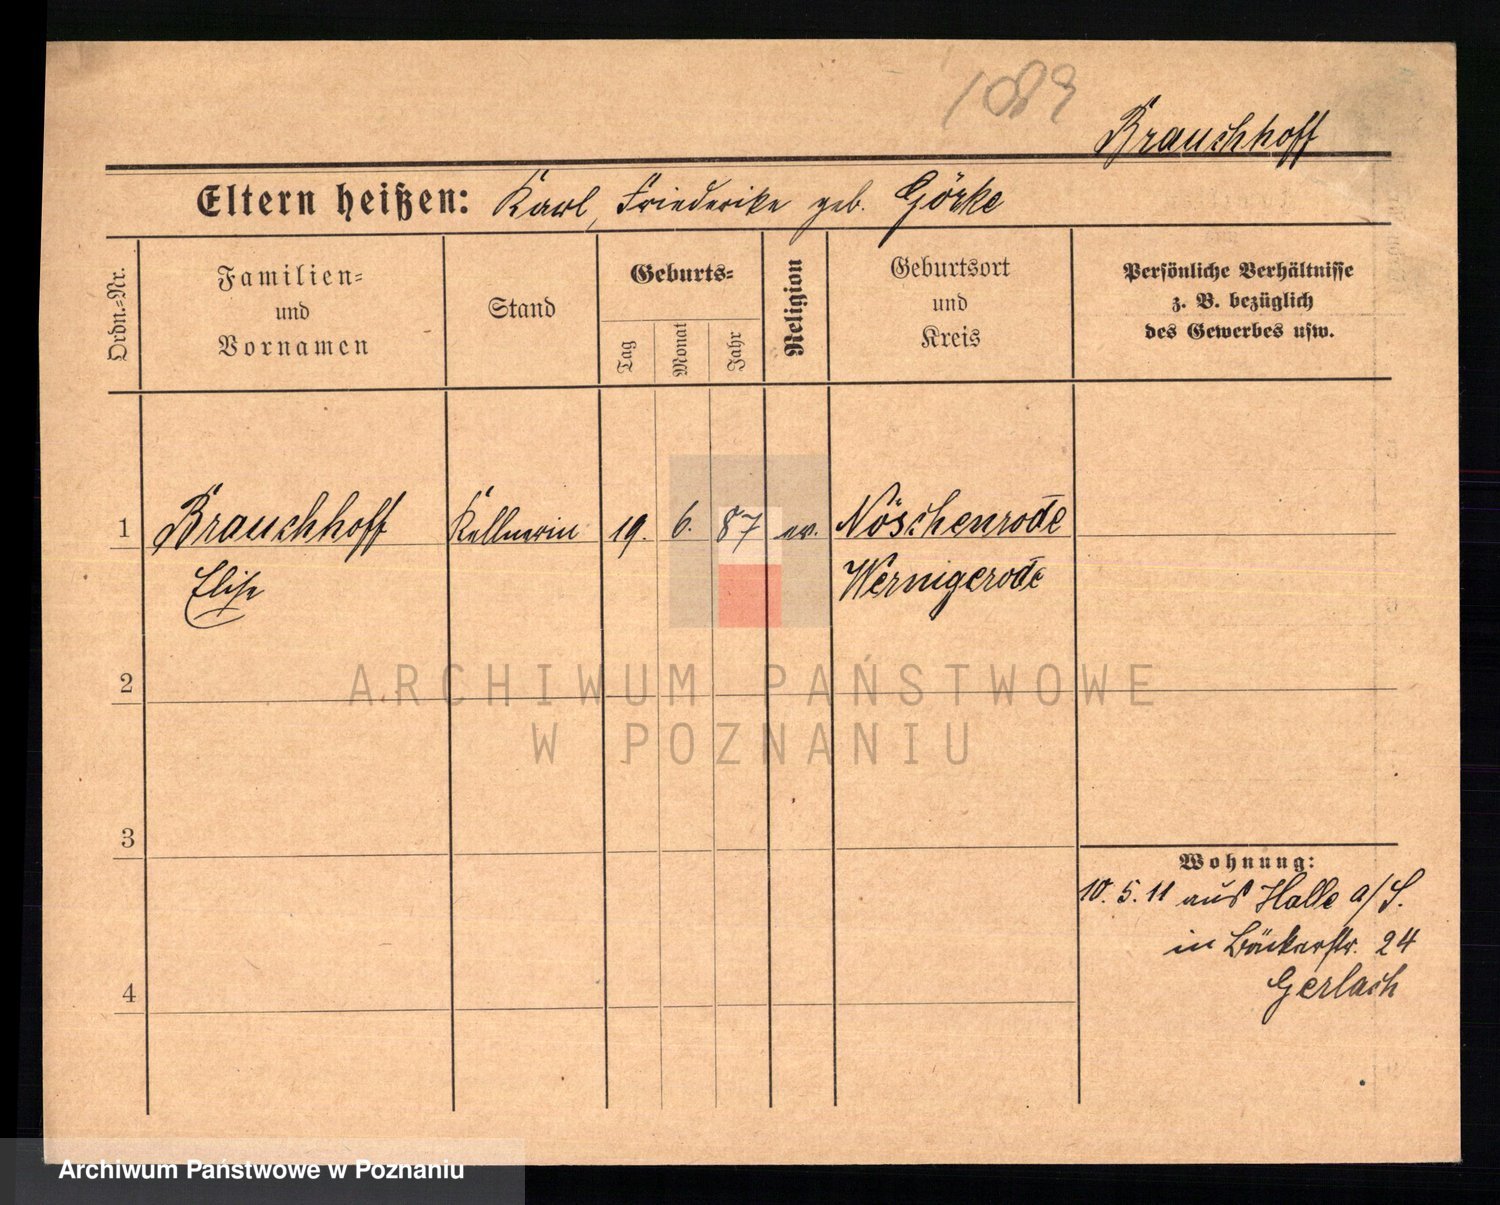 1089
Brauchhoff
Eltern heißen: Karl, Friederike geb. Görke
Ordn.=Nr.
Familien=
und
Vornamen
Stand
Geburts=
Tag
Monat
Jahr
Religion
Geburtsort
und
Kreis
Persönliche Verhältnisse
z. B. bezüglich
des Gewerbes usw.
1 Brauchhoff Kellnerin 19. 6. 87 ev. Nöschenrode
Elise Wernigerode
2
3
4
Wohnung:
10. 5. 11 aus Halle a/S.
in Bäckerstr. 24
Gerlach
ARCHIWUM PAŃSTWOWE
W POZNANIU
Archiwum Państwowe w Poznaniu